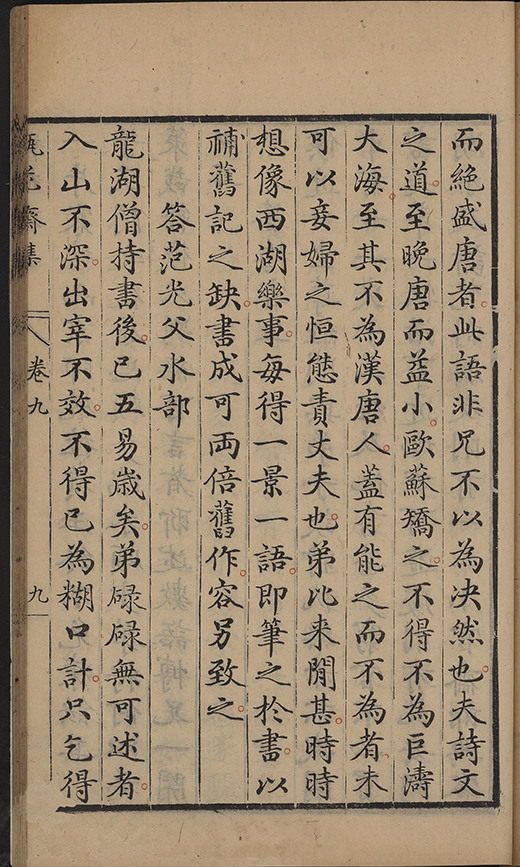 而絶盛唐者此語非兄不以為决然也夫詩文
之道至晚唐而益小歐蘇矯之不得不為巨濤
大海至其不為漢唐人蓋有能之而不為者未
可以妾婦之恒態責丈夫也弟比来閒甚時時
想像西湖樂事每得一景一語即筆之於書以
補舊記之缺書成可両倍舊作容另致之
答范光父水部
龍湖僧持書後已五易歳矣弟碌碌無可述者
入山不深出宰不效不得已為糊口計只乞得
瓶花齋集 卷九 九